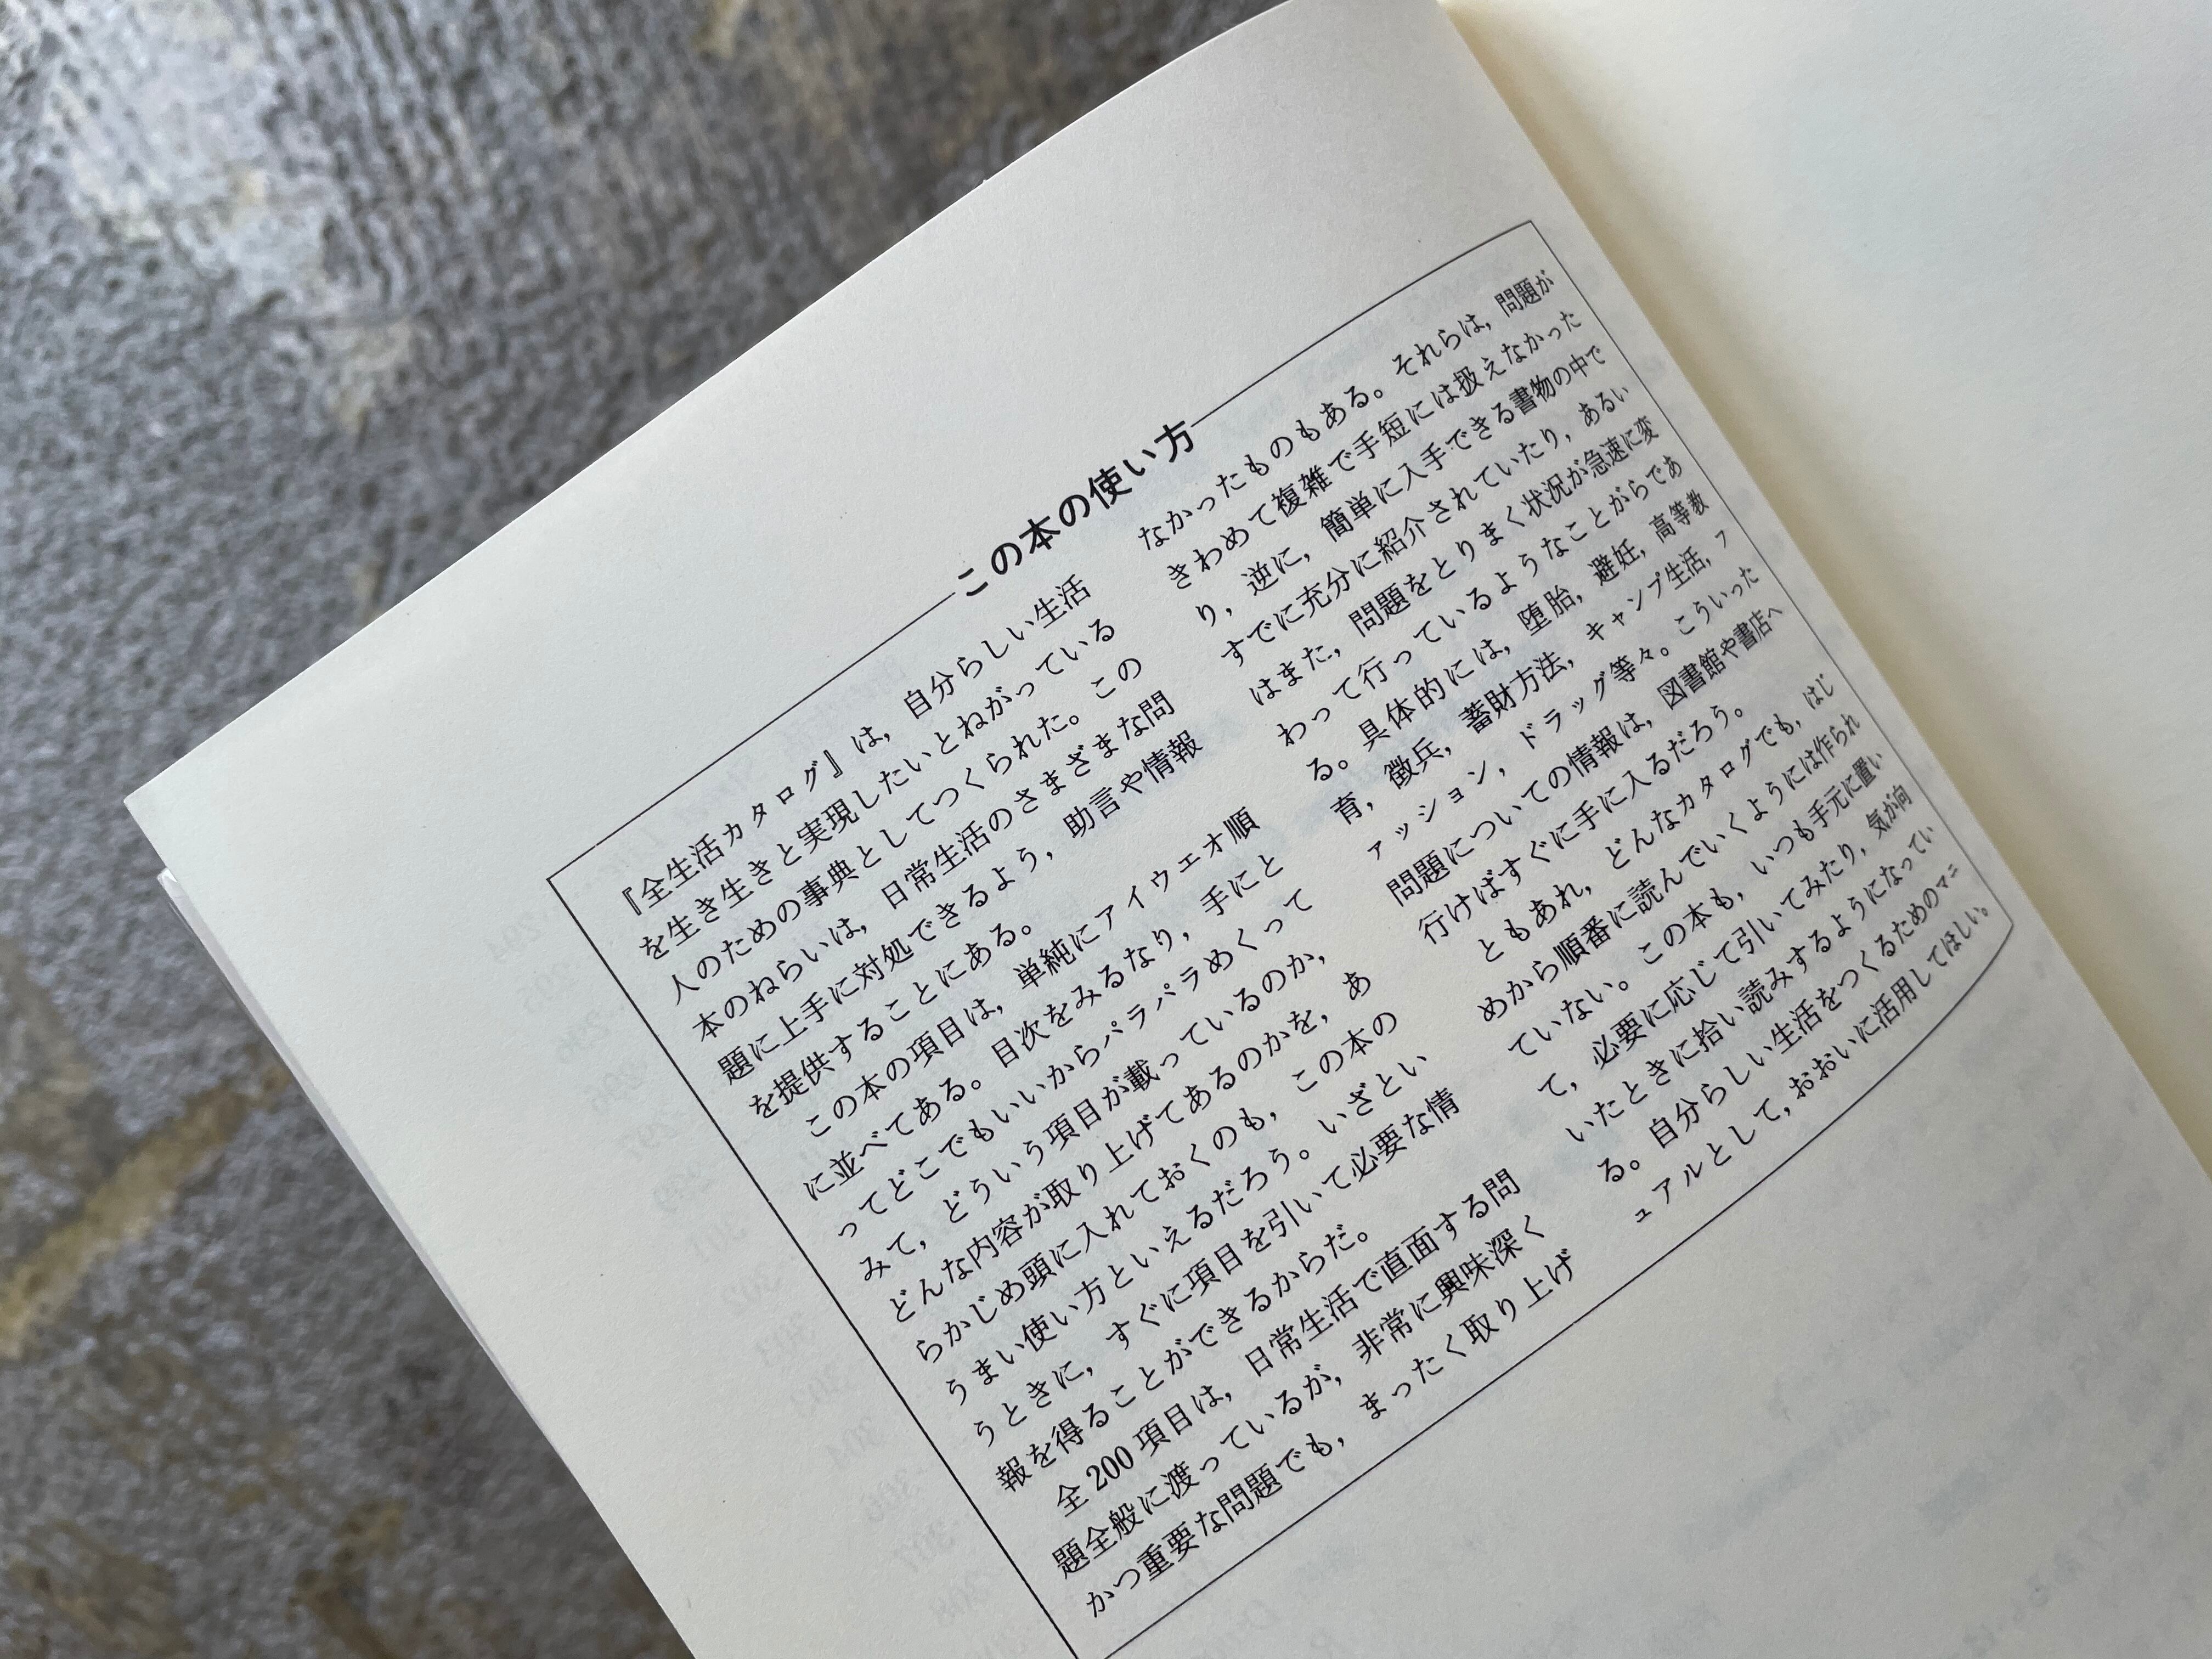 この本の使い方
『全生活カタログ』は，自分らしい生活
を生き生きと実現したいとねがっている
人のための事典としてつくられた。この
本のねらいは，日常生活のさまざまな問
題に上手に対処できるよう，助言や情報
を提供することにある。
この本の項目は，単純にアイウェオ順
に並べてある。目次をみるなり，手にと
ってどこでもいいからパラパラめくって
みて，どういう項目が載っているのか，
どんな内容が取り上げてあるのかを，あ
らかじめ頭に入れておくのも，この本の
うまい使い方といえるだろう。いざとい
うときに，すぐに項目を引いて必要な情
報を得ることができるからだ。
全200項目は，日常生活で直面する問
題全般に渡っているが，非常に興味深く
かつ重要な問題でも，まったく取り上げ
なかったものもある。それらは，問題が
きわめて複雑で手短には扱えなかった
り，逆に，簡単に入手できる書物の中で
すでに充分に紹介されていたり，あるい
はまた，問題をとりまく状況が急速に変
わって行っているようなことがらであ
る。具体的には，堕胎，避妊，高等教
育，徴兵，蓄財方法，キャンプ生活，フ
ァッション，ドラッグ等々。こういった
問題についての情報は，図書館や書店へ
行けばすぐに手に入るだろう。
ともあれ，どんなカタログでも，はじ
めから順番に読んでいくようには作られ
ていない。この本も，いつも手元に置い
て，必要に応じて引いてみたり，気が向
いたときに拾い読みするようになってい
る。自分らしい生活をつくるためのマニ
ュアルとして，おおいに活用してほしい。